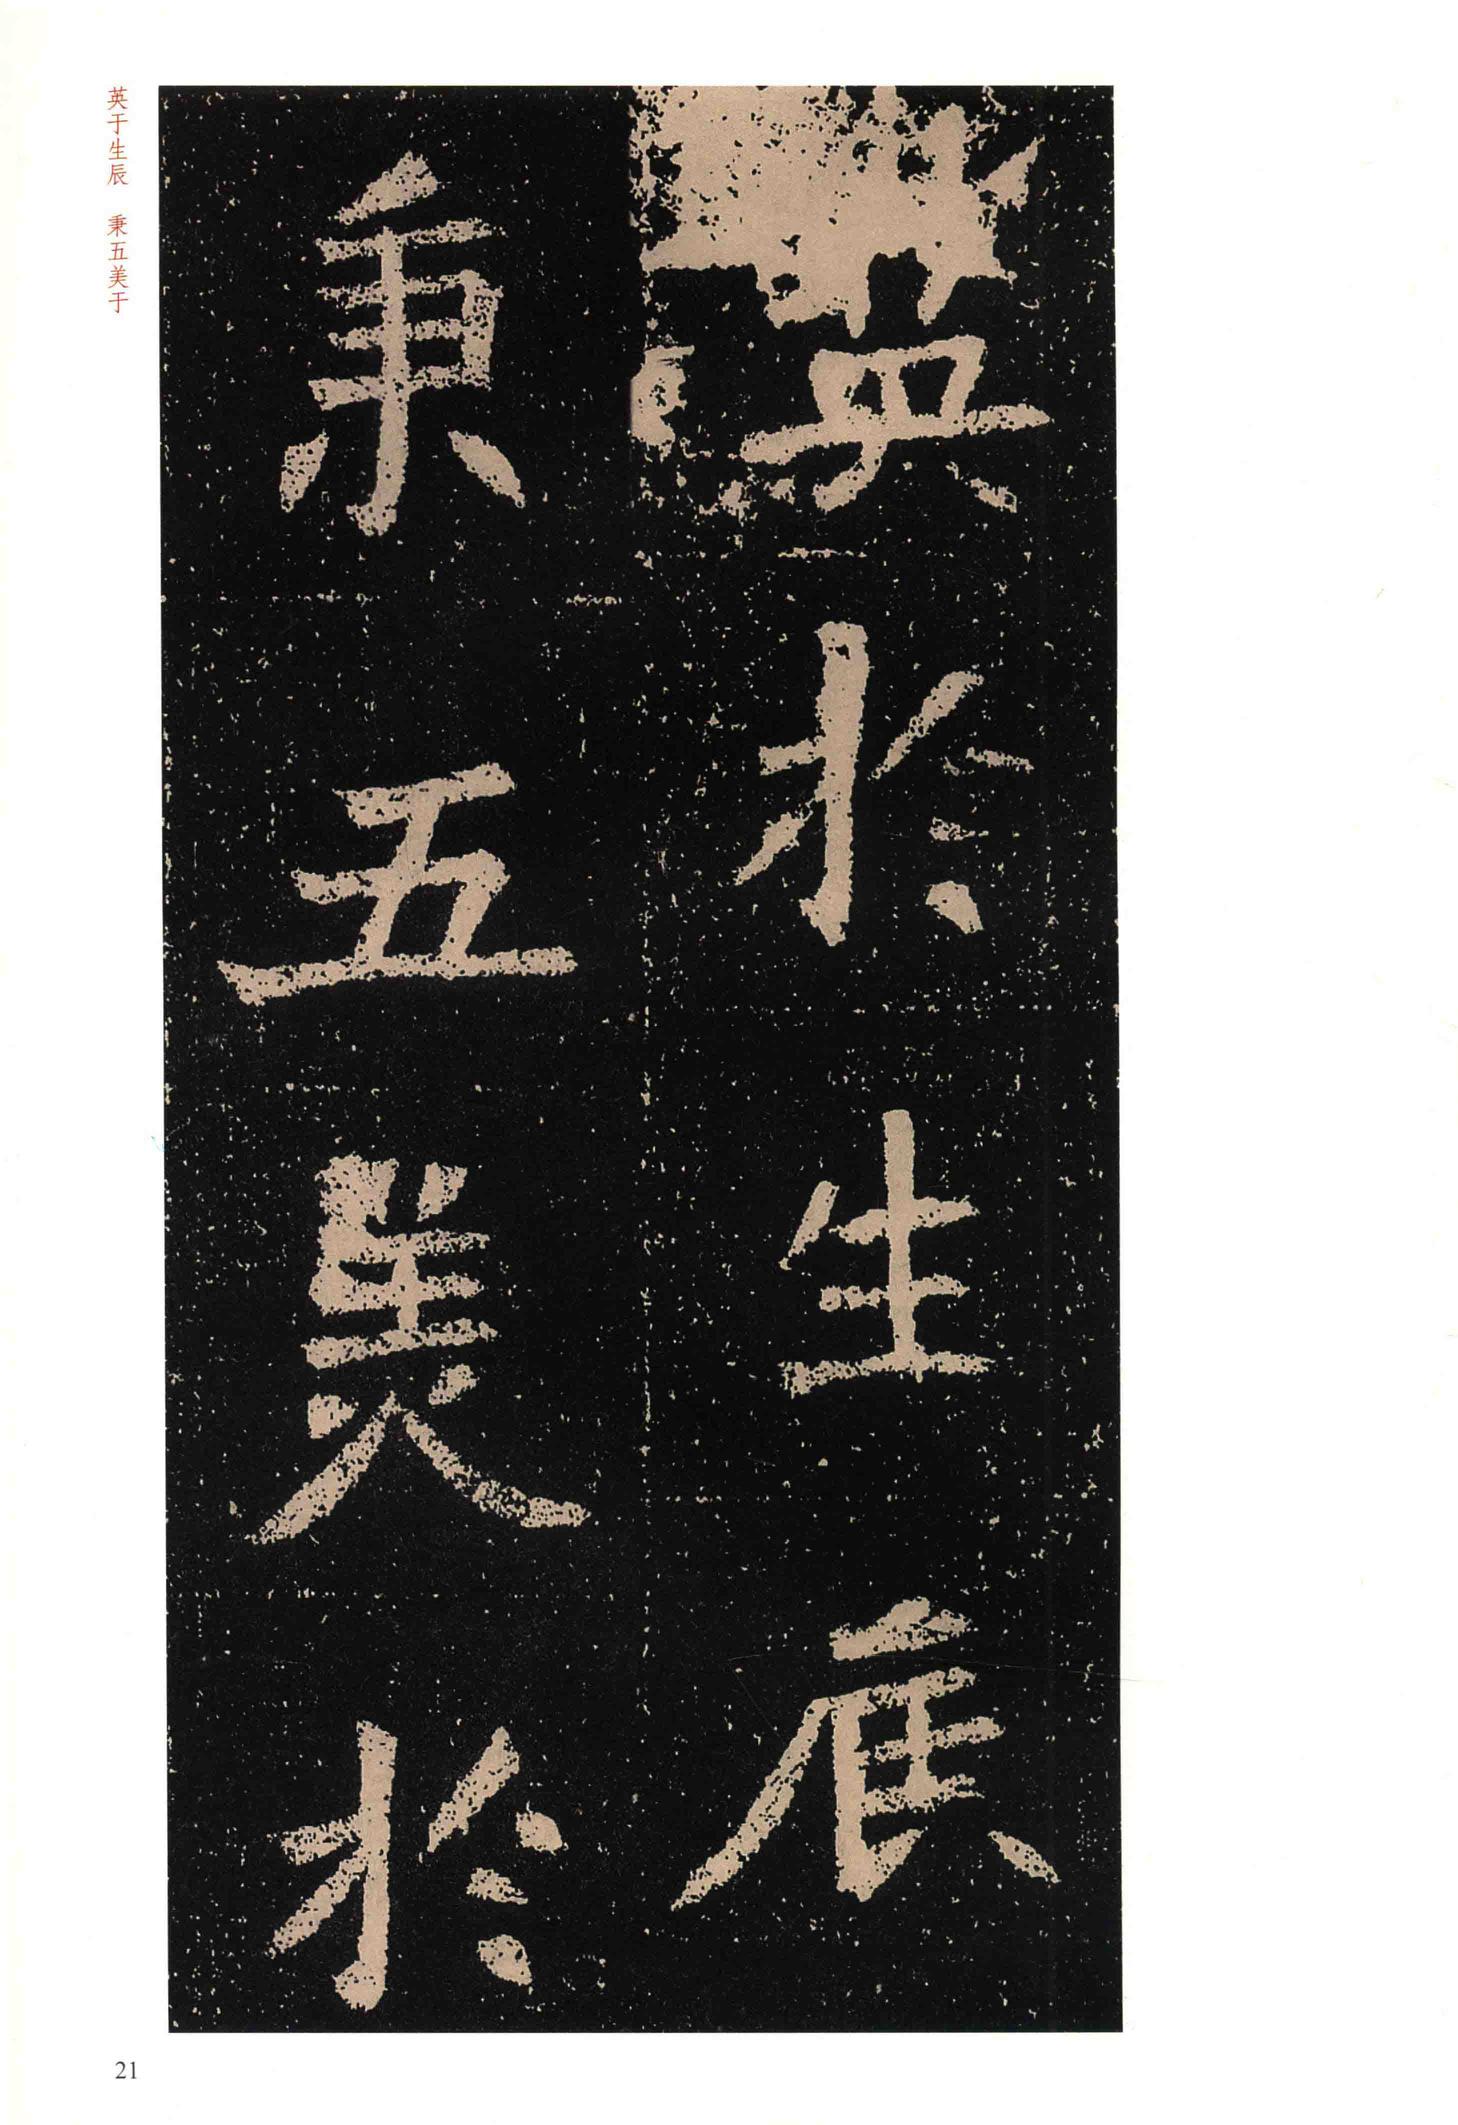 英於生辰
秉五美於
英于生辰 秉五美于
21